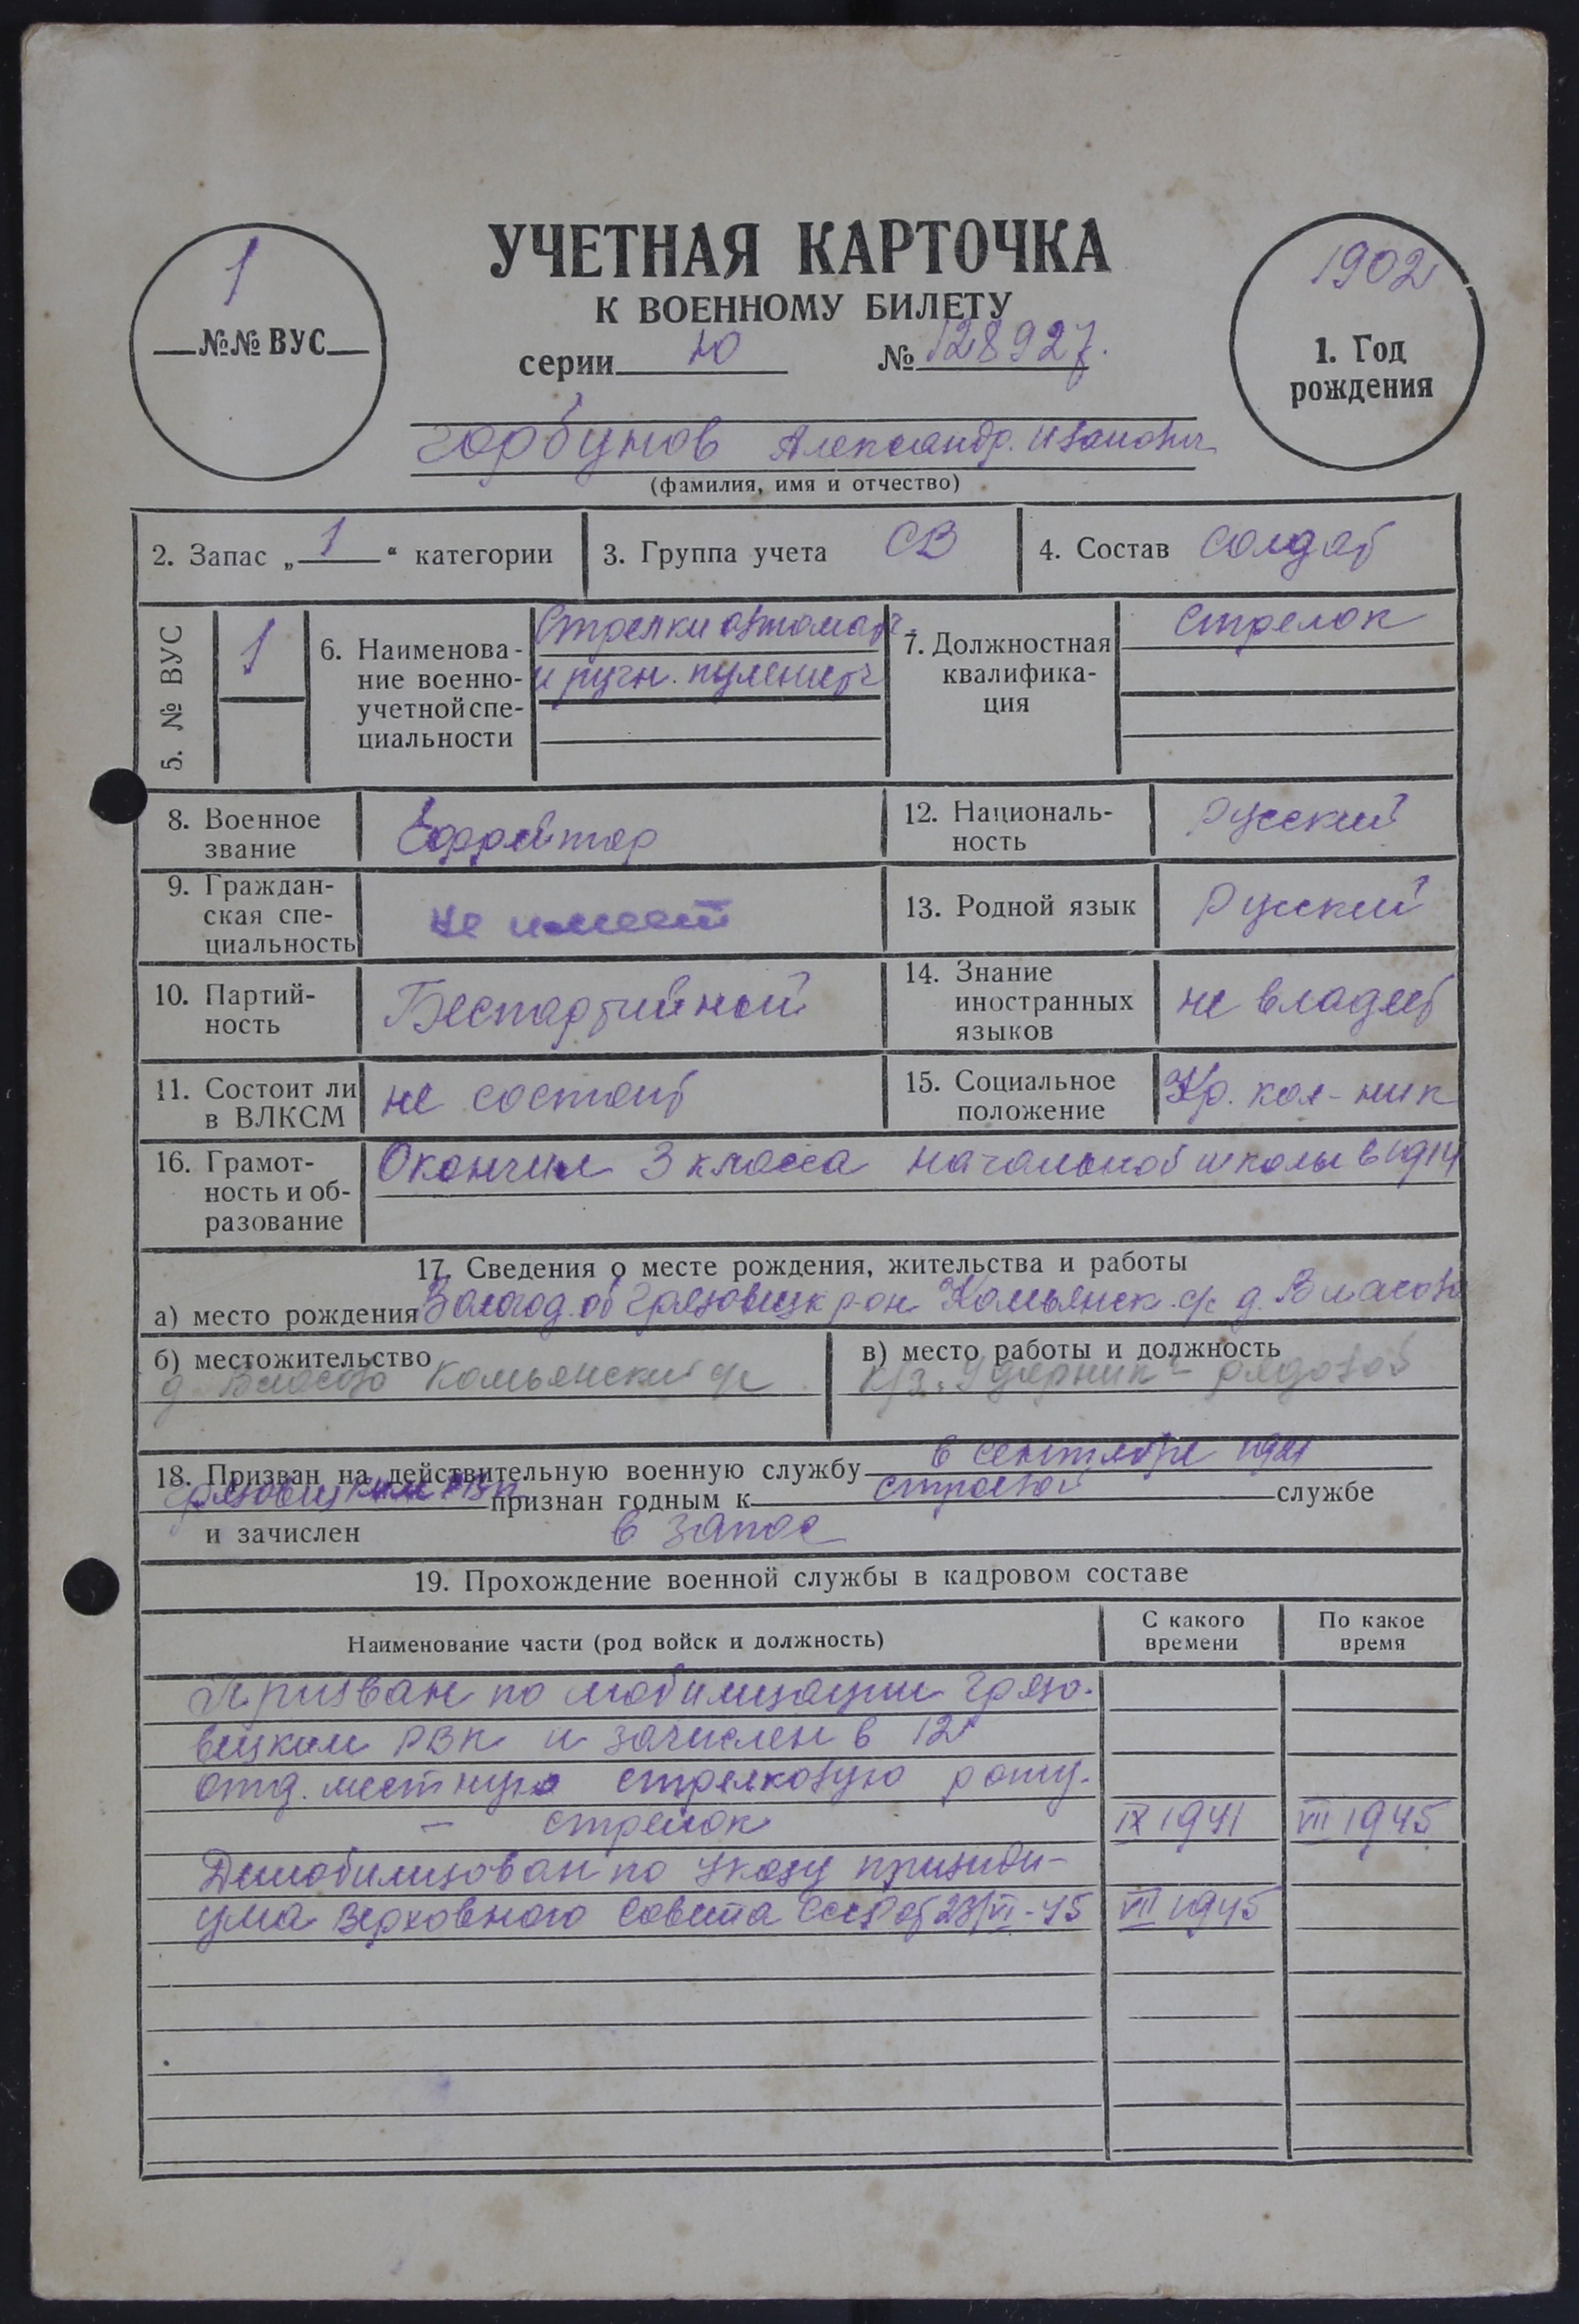 УЧЕТНАЯ КАРТОЧКА
К ВОЕННОМУ БИЛЕТУ
серии Ю № 128927.
1
№№ ВУС
1902
1. Год
рождения
Горбунов Александр. Иванович
(фамилия, имя и отчество)
2. Запас „ 1 “ категории
3. Группа учета СВ
4. Состав солдат
5. № ВУС
1
6. Наименова-
ние военно-
учетной спе-
циальности
Стрелки автомат.
и ручн. пулеметч
7. Должностная
квалифика-
ция
Стрелок
8. Военное
звание
Ефрейтор
12. Националь-
ность
Русский
9. Граждан-
ская спе-
циальность
не имеет
13. Родной язык
Русский
10. Партий-
ность
Беспартийной
14. Знание
иностранных
языков
не владеет
11. Состоит ли
в ВЛКСМ
не состоит
15. Социальное
положение
Кр. кол-ник
16. Грамот-
ность и об-
разование
Окончил 3 класса начальной школы в 1914
17. Сведения о месте рождения, жительства и работы
а) место рождения Вологод. об Грязовецк р-он Комьянск. с/с д. Власово
б) местожительство
д. Власово Комьянский с/с
в) место работы и должность
к/з „Ударник“ - рядовой
18. Призван на действительную военную службу в сентябре 1941
Грязовецким РВК признан годным к строевой службе
и зачислен в запас
19. Прохождение военной службы в кадровом составе
Наименование части (род войск и должность)
С какого
времени
По какое
время
Призван по мобилизации Грязо-
вецким РВК и зачислен в 12
отд. местную стрелковую роту.
— стрелок IX 1941 VII 1945
Демобилизован по указу призиди-
ума Верховного Совета СССР от 23/VI-45 VII 1945